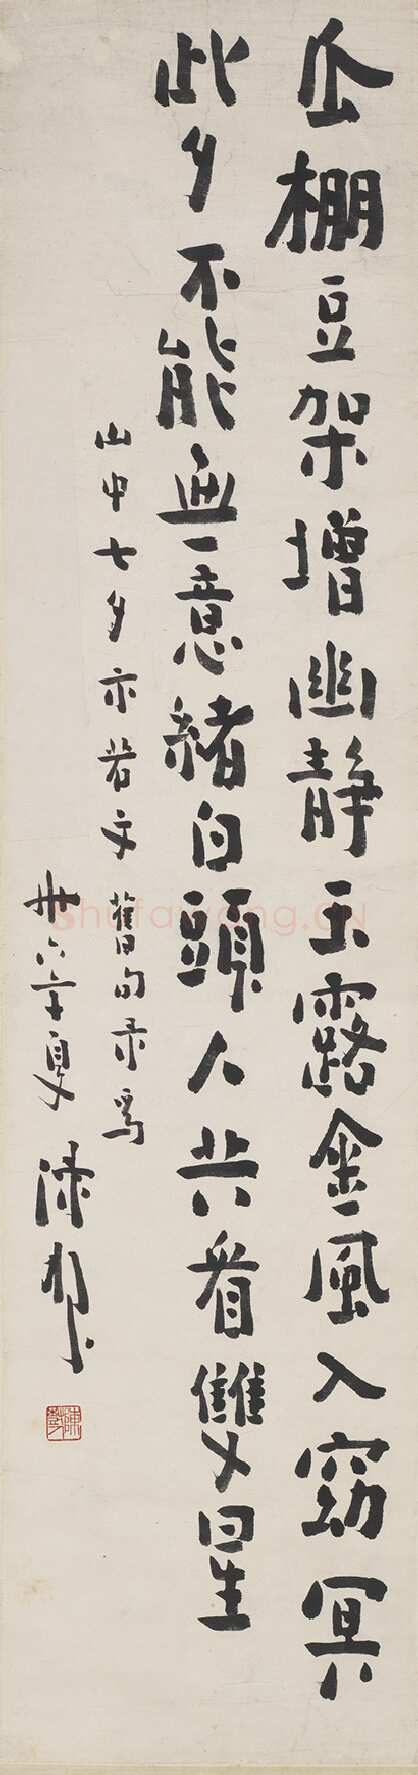 瓜棚豆架增幽靜玉露金風入窈冥
此夕不能無意緒白頭人共看雙星
山中七夕示若文舊句录
卅六年夏
shufawang.CN